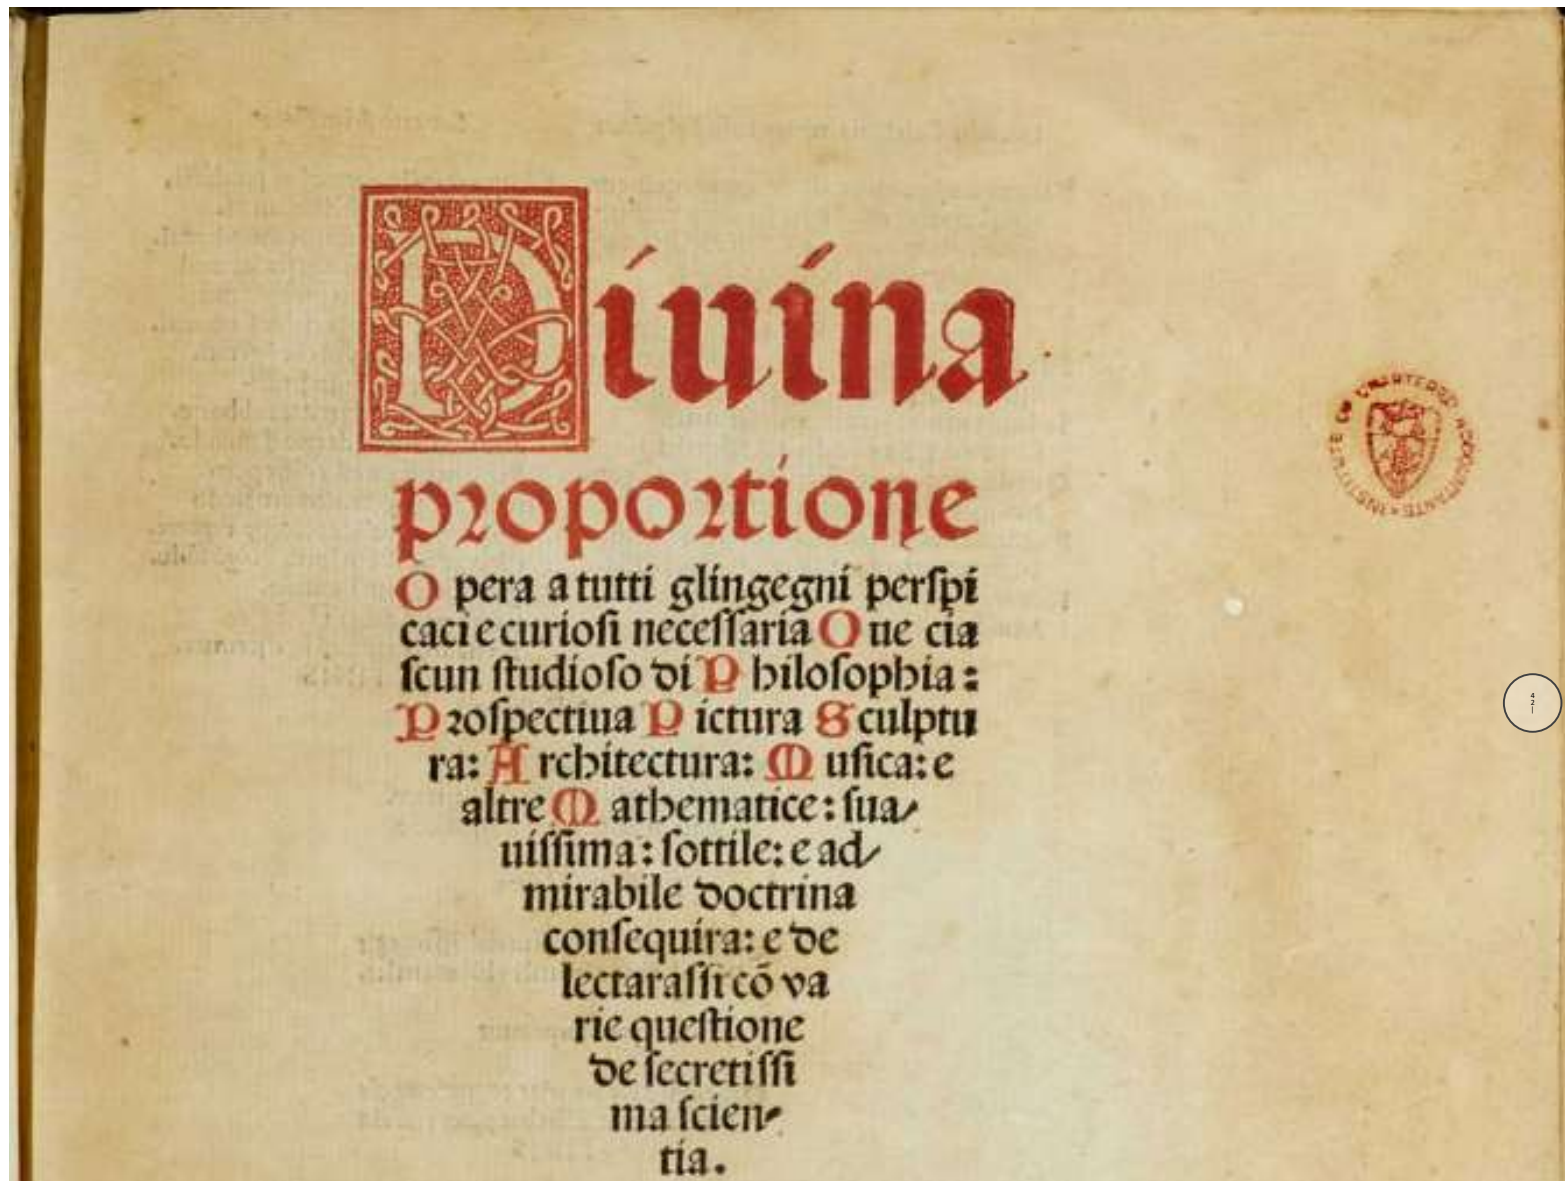 Diuina
proportione
Opera a tutti glingegni perspi
caci e curiosi necessaria Oue cia
scun studioso di Philosophia:
Prospectiua Pictura Sculptu
ra: Architectura: Musica: e
altre Mathematice: sua
uissima: sottile: e ad
mirabile doctrina
consequira: e de
lectarassi cō va
rie questione
de secretissi
ma scien
tia.
INSTITUTE OF CHARTERED ACCOUNTANTS
4
2